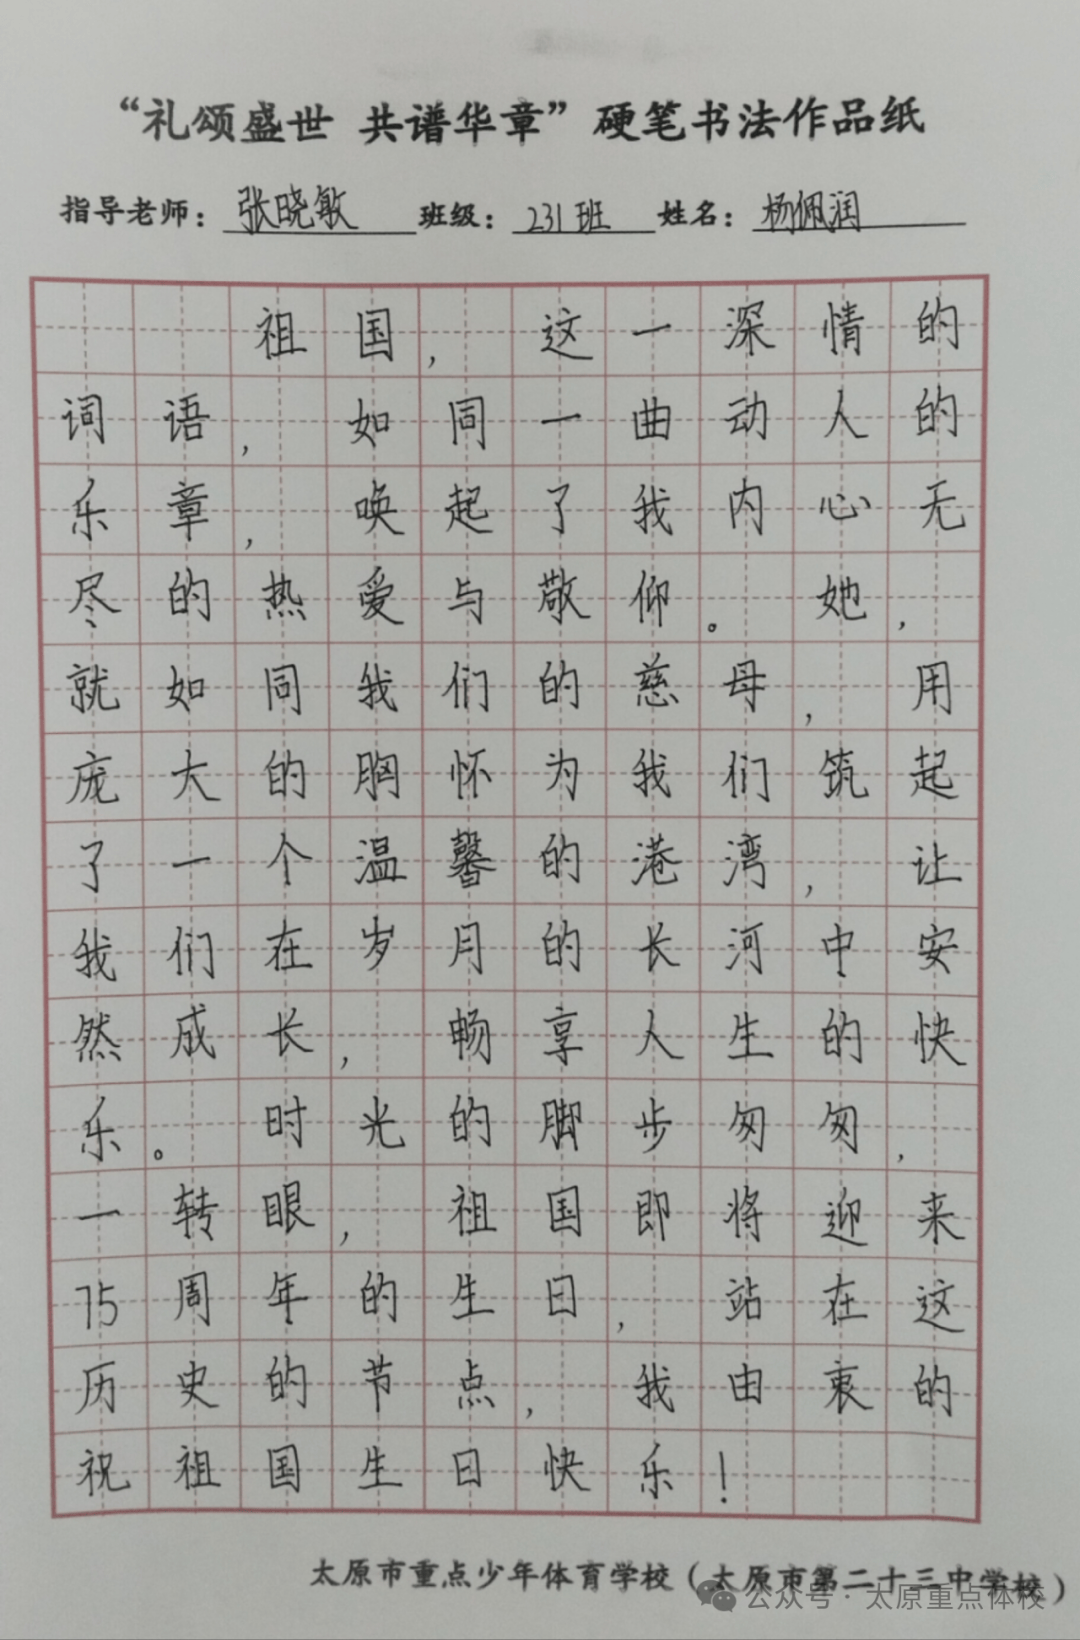 “礼颂盛世 共谱华章”硬笔书法作品纸
指导老师：张晓敏 班级：231班 姓名：杨佩润
祖国，这一深情的
词语，如同一曲动人的
乐章，唤起了我内心无
尽的热爱与敬仰。她，
就如同我们的慈母，用
庞大的胸怀为我们筑起
了一个温馨的港湾，让
我们在岁月的长河中安
然成长，畅享人生的快
乐。时光的脚步匆匆，
一转眼，祖国即将迎来
75周年的生日，站在这
历史的节点，我由衷的
祝祖国生日快乐！
太原市重点少年体育学校（太原市第二十三中学校）
公众号·太原重点体校